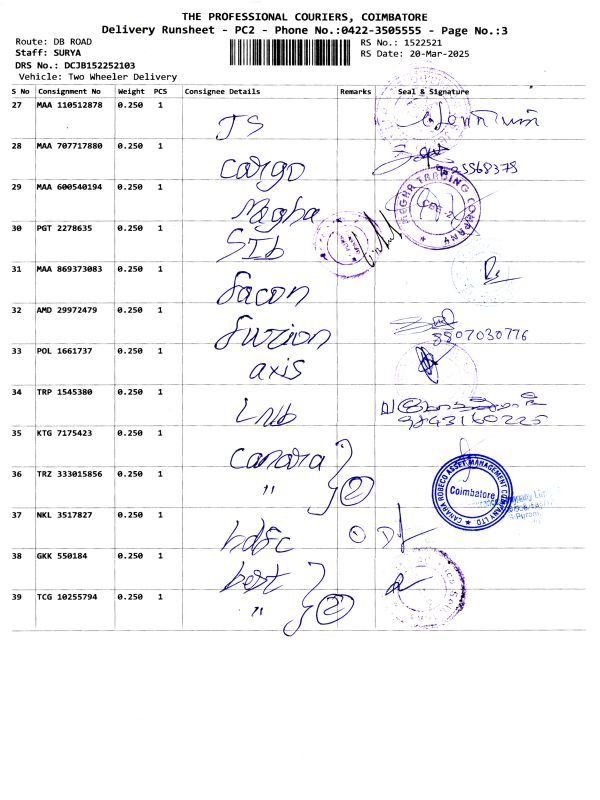 THE PROFESSIONAL COURIERS, COIMBATORE
Delivery Runsheet - PC2 - Phone No.:0422-3505555 - Page No.:3
Route: DB ROAD RS No.: 1522521
Staff: SURYA RS Date: 20-Mar-2025
DRS No.: DCJB152252103
Vehicle: Two Wheeler Delivery
S No Consignment No Weight PCS Consignee Details Remarks Seal & Signature
27 MAA 110512878 0.250 1 JS
28 MAA 707717880 0.250 1 Cargo
29 MAA 600540194 0.250 1 Megha MEGHA TRADING COMPANY
30 PGT 2278635 0.250 1 SIb
31 MAA 869373083 0.250 1 facon
32 AMD 29972479 0.250 1 fuzion 8507030776
33 POL 1661737 0.250 1 axis
34 TRP 1545380 0.250 1 Lnb 9843160225
35 KTG 7175423 0.250 1 Canara
36 TRZ 333015856 0.250 1 " 2 CANARA ROBECO ASSET MANAGEMENT COMPANY LTD Coimbatore
37 NKL 3517827 0.250 1 hdfc
38 GKK 550184 0.250 1 best
39 TCG 10255794 0.250 1 " 2